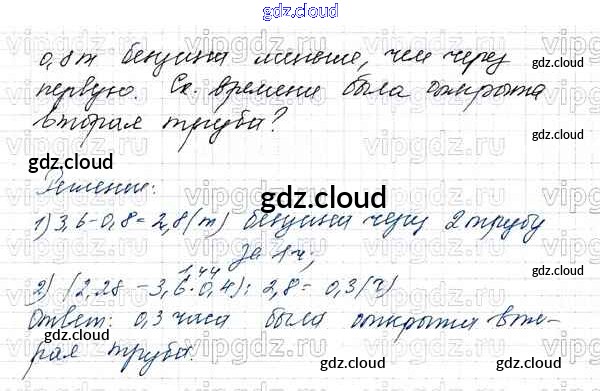 gdz.cloud
0,8т бензина меньше, чем через
первую. Ск. времени была открыта
вторая труба?
Решение:
1) 3,6-0,8=2,8(т) бензина через 2 трубу
за 1 ч;
1,44
2) (2,28-3,6·0,4):2,8=0,3(ч)
Ответ: 0,3 часа была открыта вто-
рая труба.
gdz.cloud
gdz.cloud
gdz.cloud
gdz.cloud
gdz.cloud
gdz.cloud
gdz.cloud
gdz.cloud
gdz.cloud
vipgdz.ru